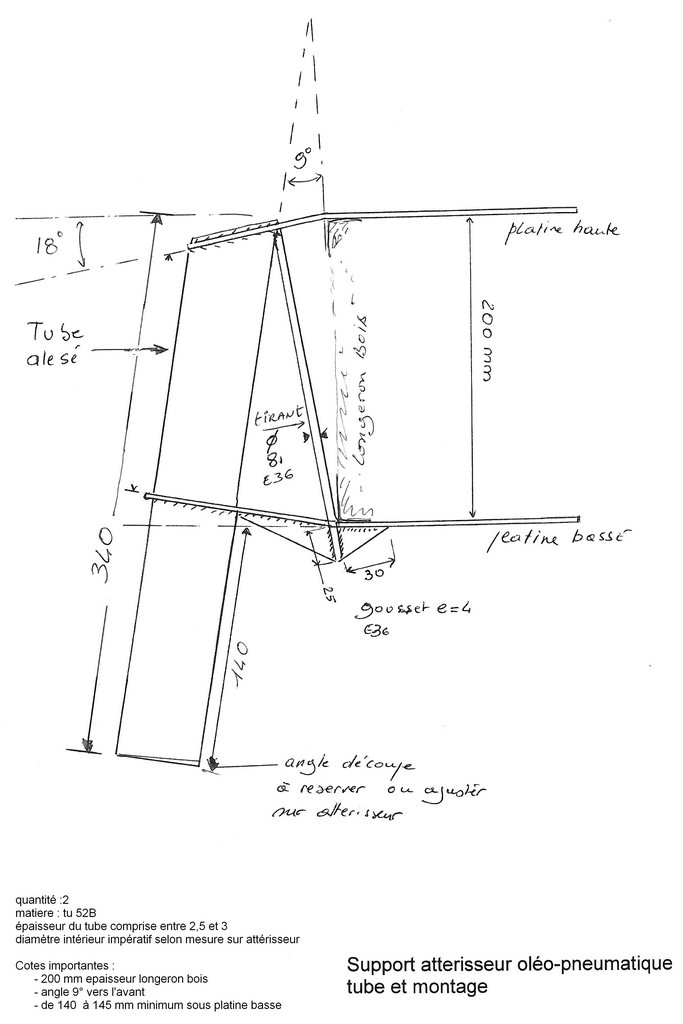 9°
18°
platine haute
Tube
alesé
200 mm
longeron BOIS
tiRANT
ø
8
E36
platine basse
340
25
30
gousset e=4
E36
140
angle découpe
à reserver ou ajuster
sur atterisseur
quantité :2
matiere : tu 52B
épaisseur du tube comprise entre 2,5 et 3
diamètre intérieur impératif selon mesure sur attérisseur
Cotes importantes :
- 200 mm epaisseur longeron bois
- angle 9° vers l'avant
- de 140 à 145 mm minimum sous platine basse
Support atterisseur oléo-pneumatique
tube et montage